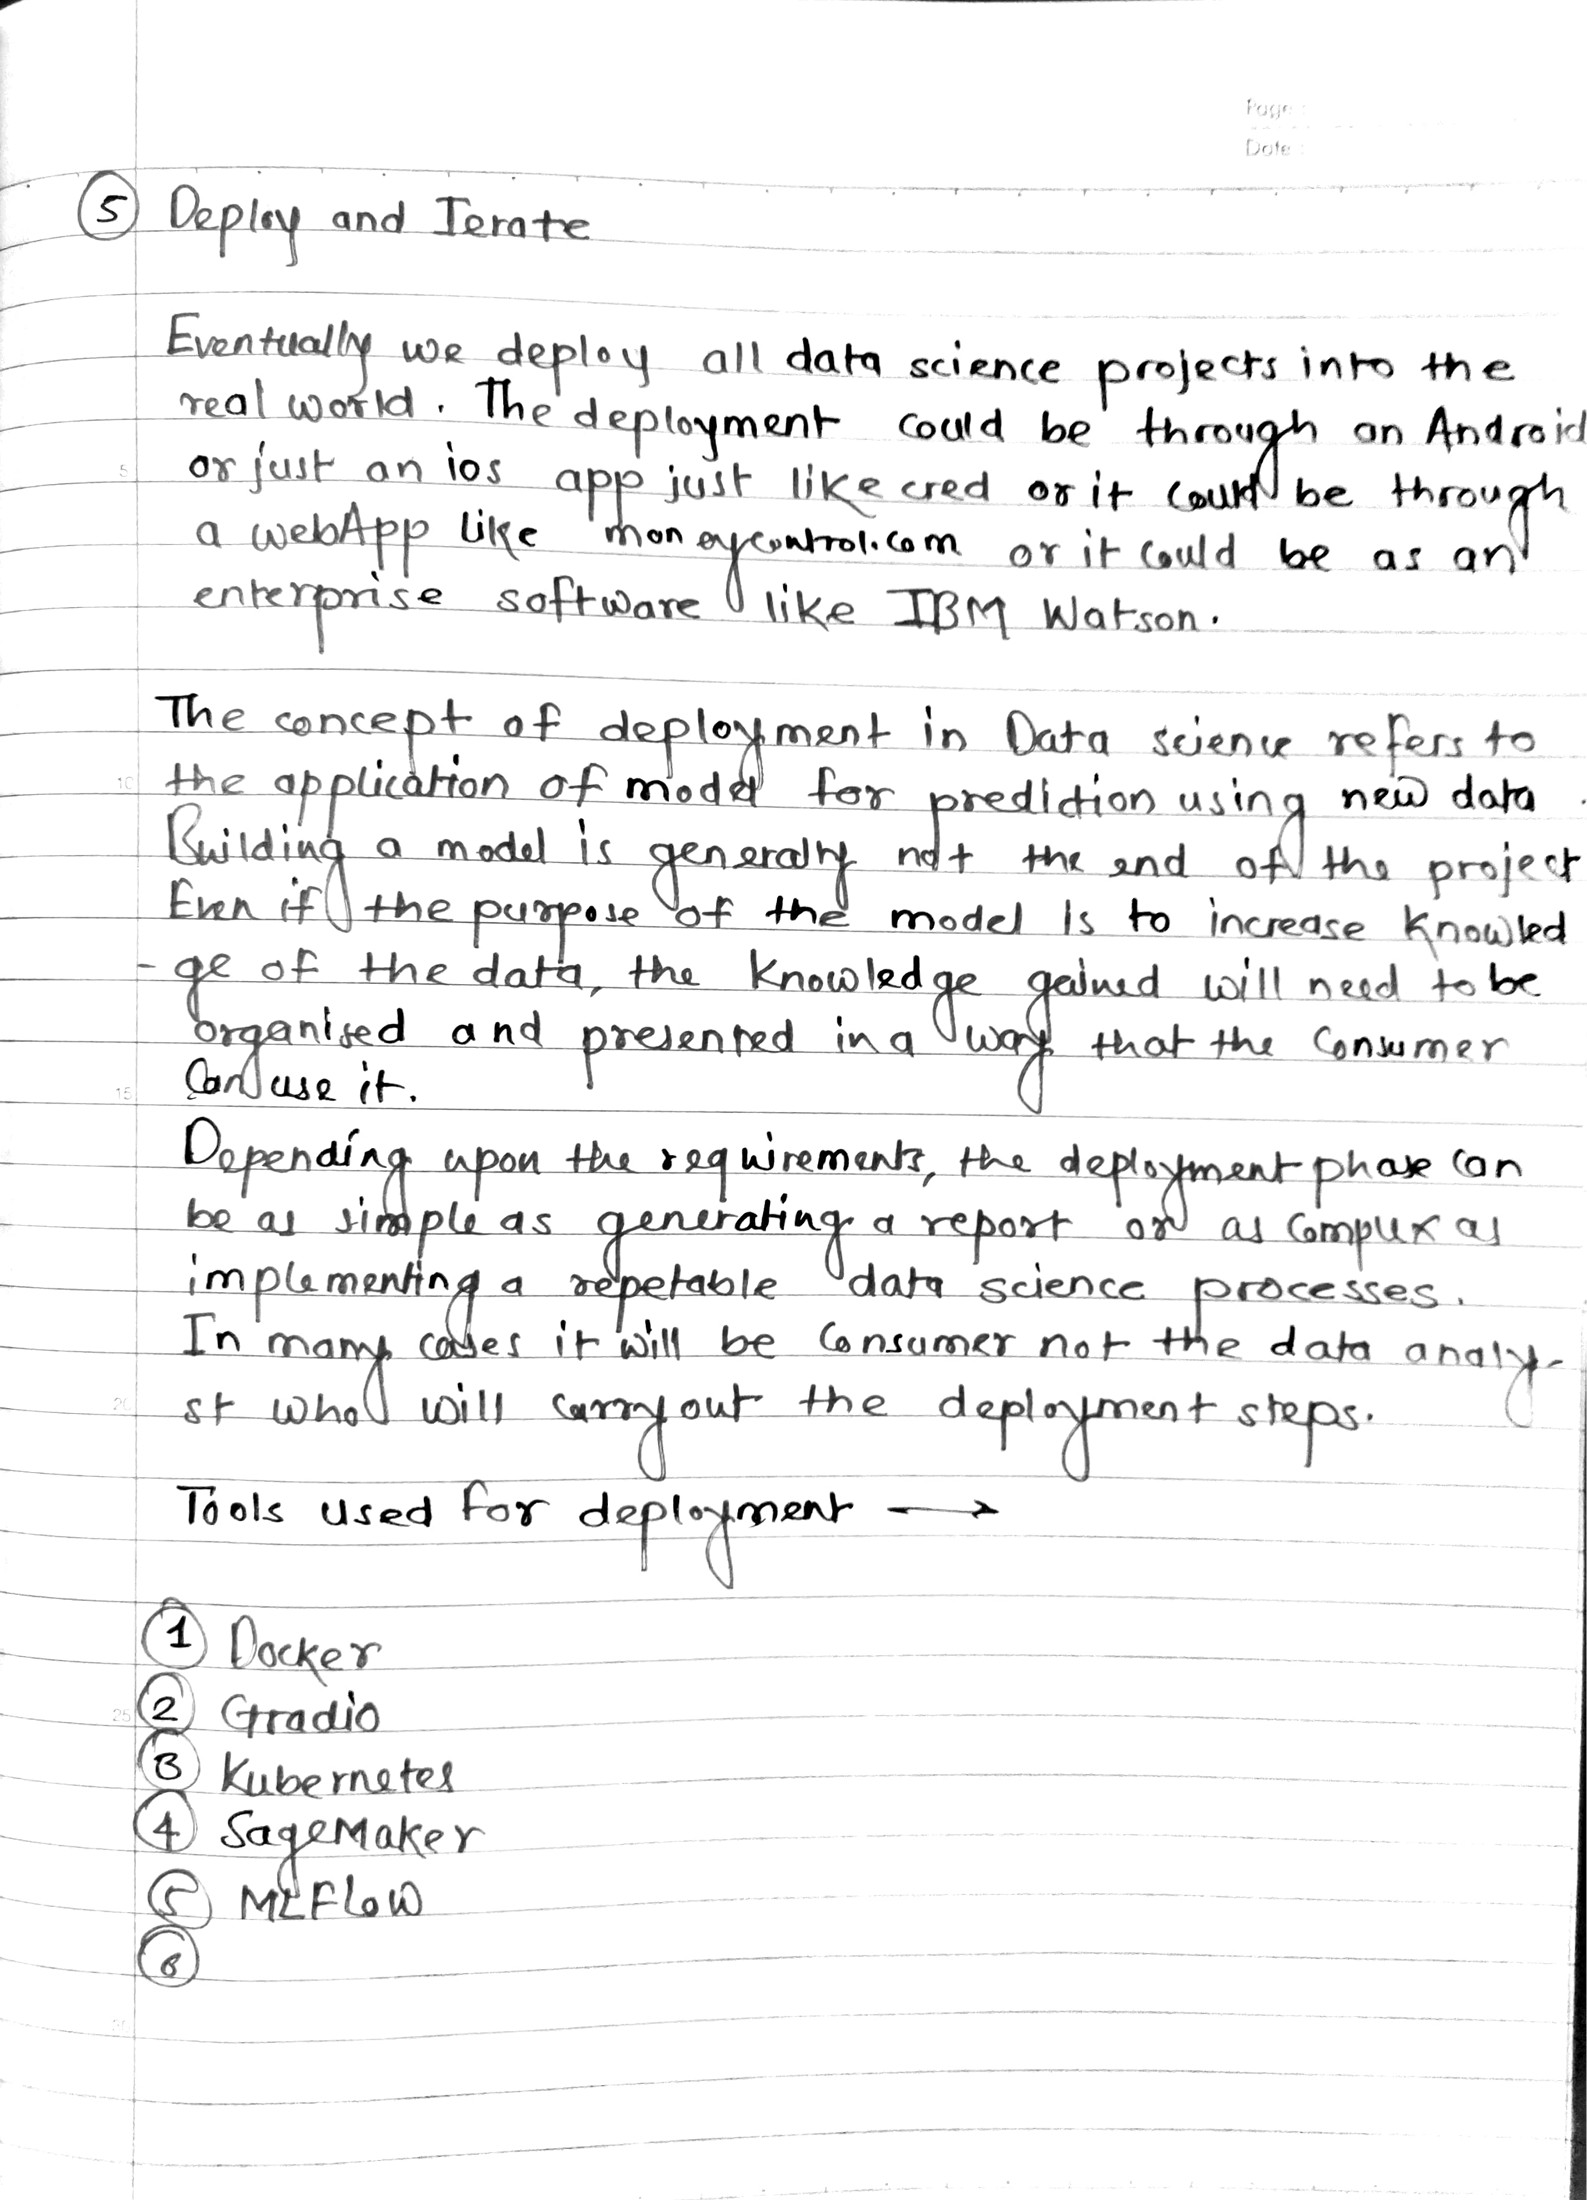 Page :
Date :
5 Deploy and Ierate
Eventually we deploy all data science projects into the
real world. The deployment could be through an Android
or just an ios app just like cred or it could be through
a webApp like moneycontrol.com or it could be as an
enterprise software like IBM Watson.
The concept of deployment in Data science refers to
the application of model for prediction using new data .
Building a model is generally not the end of the project
Even if the purpose of the model is to increase knowled
- ge of the data, the knowledge gained will need to be
organised and presented in a way that the consumer
can use it.
Depending upon the requirements, the deployment phase can
be as simple as generating a report or as complex as
implementing a repetable data science processes.
In many cases it will be consumer not the data analy-
st who will carry out the deployment steps.
Tools used for deployment →
1 Docker
2 Gradio
3 Kubernetes
4 SageMaker
5 MLFlow
6